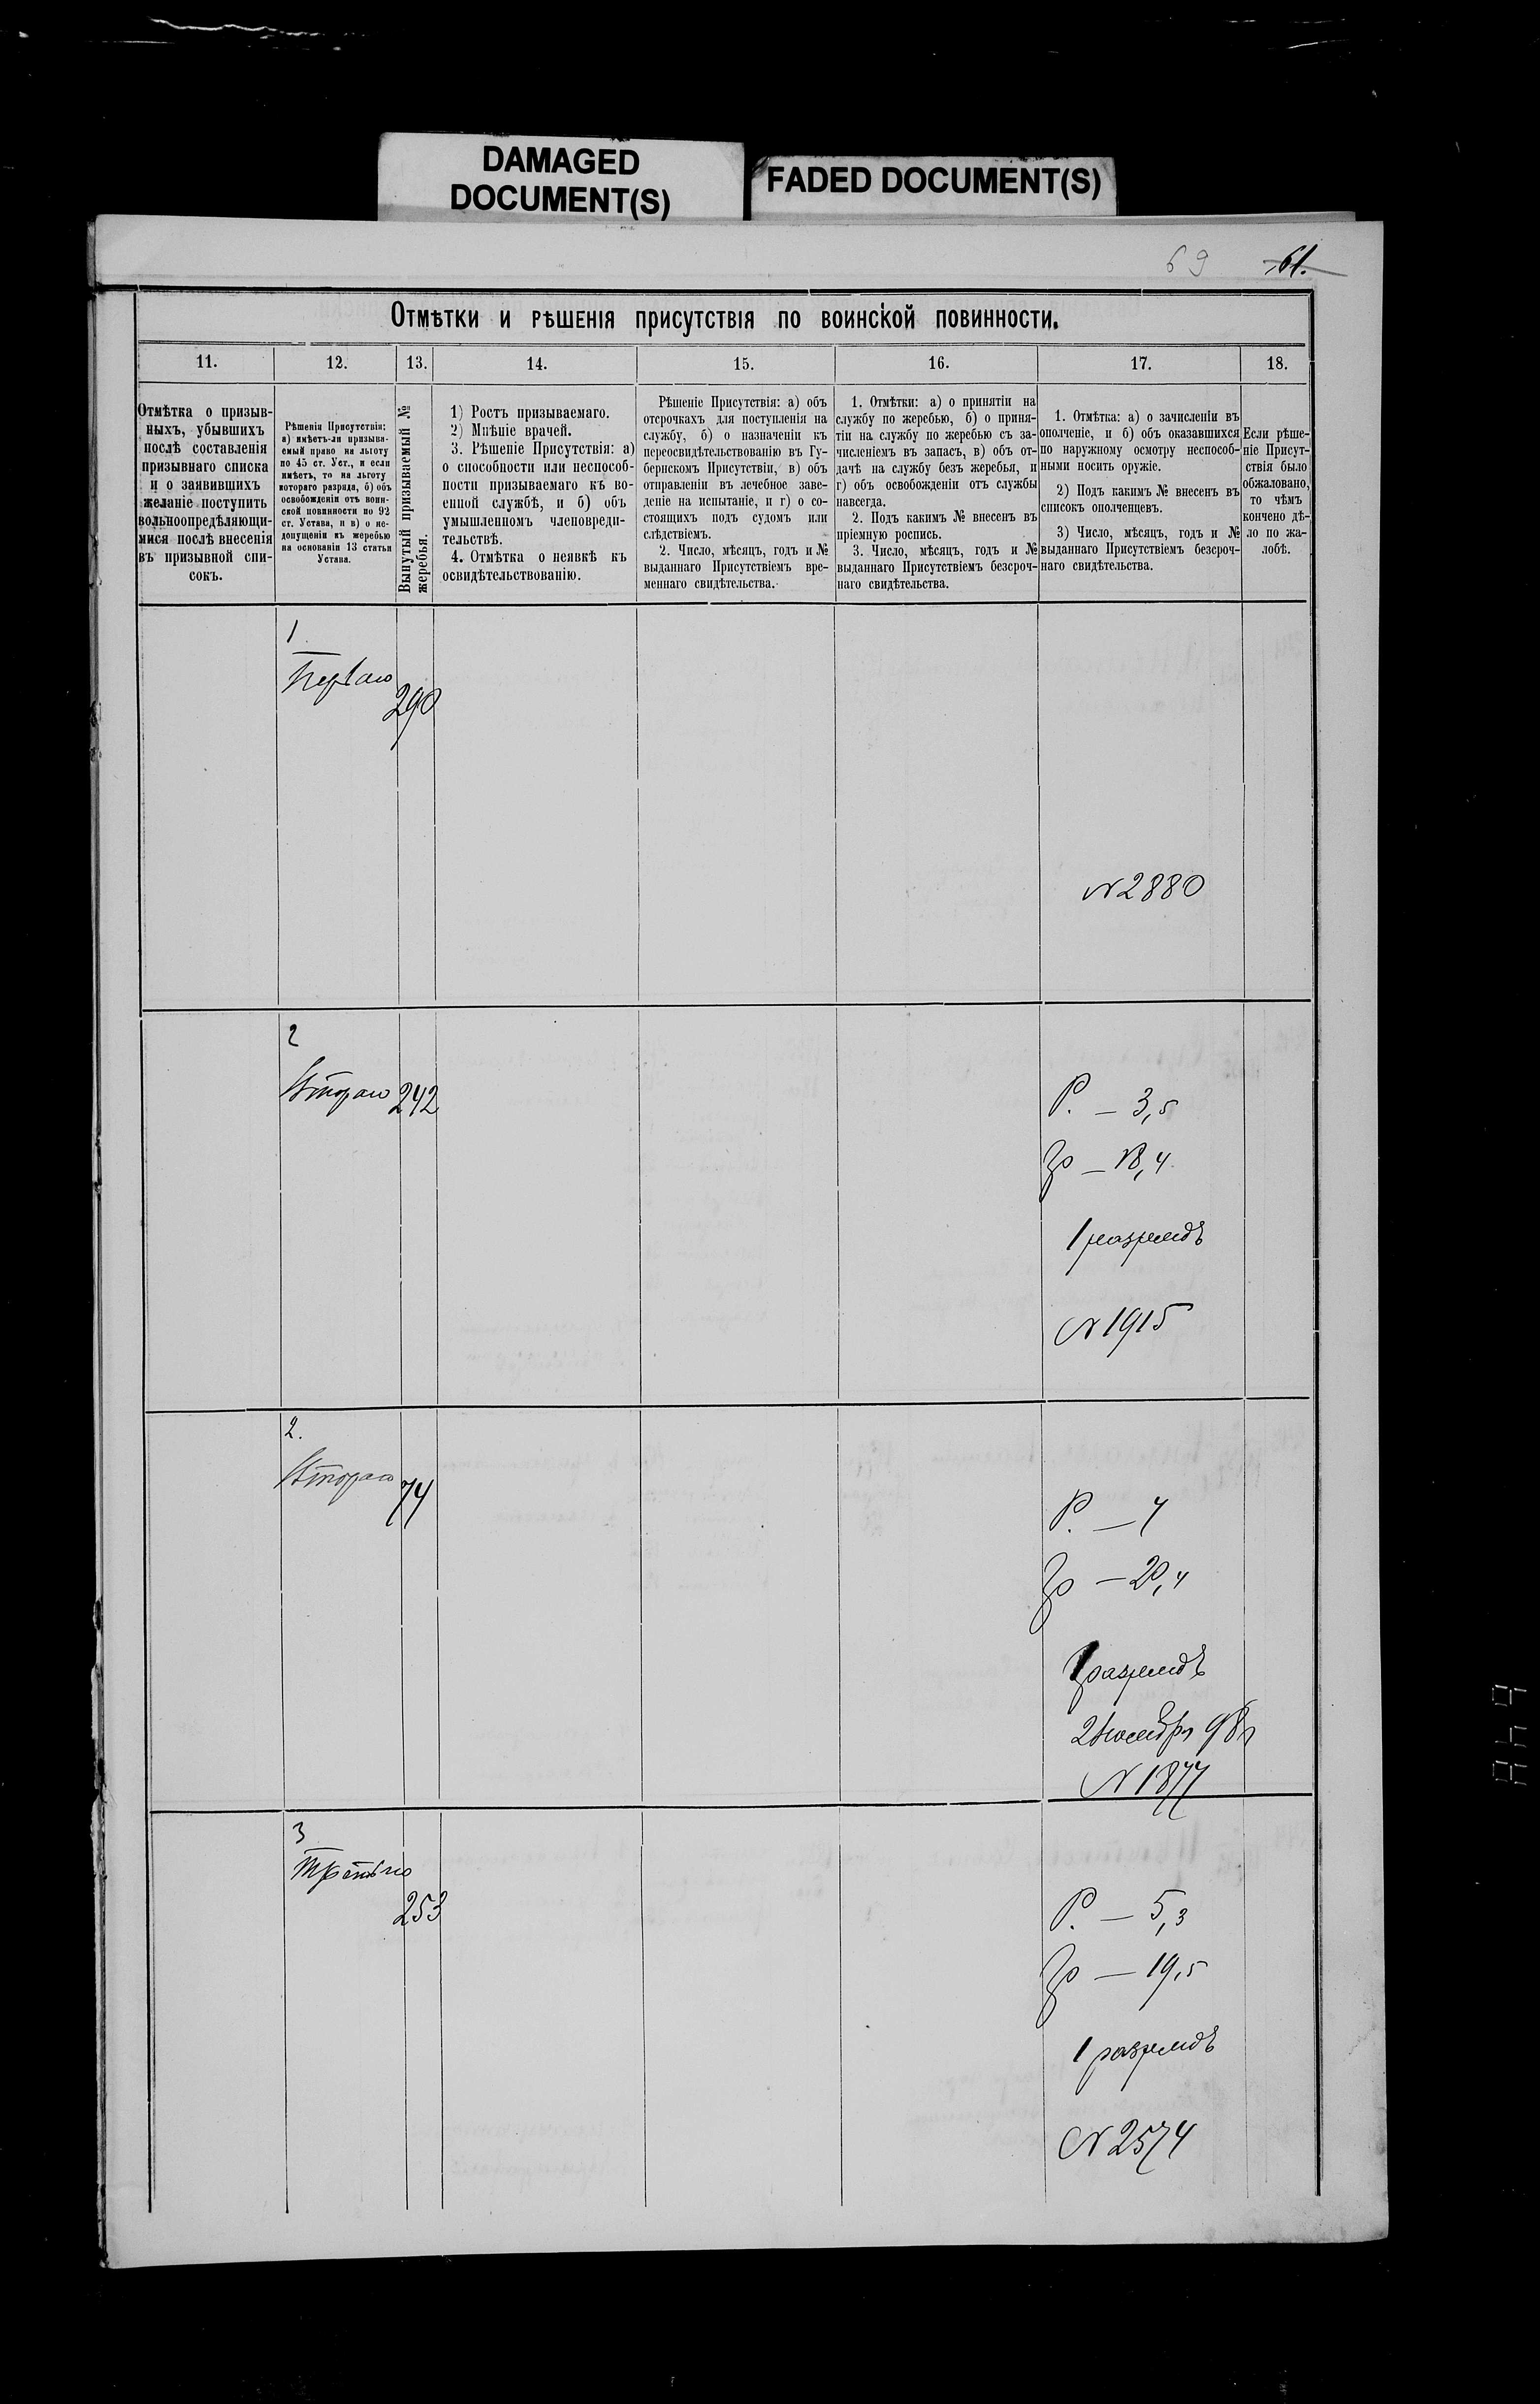 DAMAGED
DOCUMENT(S)
FADED DOCUMENT(S)
69 61.
Отмѣтки и рѣшенія присутствія по воинской повинности.
11. 12. 13. 14. 15. 16. 17. 18.
Отмѣтка о призыв-
ныхъ, убывшихъ
послѣ составленія
призывнаго списка
и о заявившихъ
желаніе поступить
вольноопредѣляющи-
мися послѣ внесенія
въ призывной спи-
сокъ.
Рѣшенія Присутствія:
а) имѣетъ-ли призыва-
емый право на льготу
по 45 ст. Уст., и если
имѣетъ, то на льготу
котораго разряда, б) объ
освобожденіи отъ воин-
ской повинности по 92
ст. Устава, и в) о не-
допущеніи къ жеребью
на основаніи 13 статьи
Устава.
Вынутый призываемый №
жеребья.
1) Ростъ призываемаго.
2) Мнѣніе врачей.
3. Рѣшеніе Присутствія: а)
о способности или неспособ-
ности призываемаго къ во-
енной службѣ, и б) объ
умышленномъ членовреди-
тельствѣ.
4. Отмѣтка о неявкѣ къ
освидѣтельствованію.
Рѣшеніе Присутствія: а) объ
отсрочкахъ для поступленія на
службу, б) о назначеніи къ
переосвидѣтельствованію въ Гу-
бернскомъ Присутствіи, в) объ
отправленіи въ лечебное заве-
деніе на испытаніе, и г) о со-
стоящихъ подъ судомъ или
слѣдствіемъ.
2. Число, мѣсяцъ, годъ и №
выданнаго Присутствіемъ вре-
меннаго свидѣтельства.
1. Отмѣтки: а) о принятіи на
службу по жеребью, б) о приня-
тіи на службу по жеребью съ за-
численіемъ въ запасъ, в) объ от-
дачѣ на службу безъ жеребья, и
г) объ освобожденіи отъ службы
навсегда.
2. Подъ какимъ № внесенъ въ
пріемную роспись.
3. Число, мѣсяцъ, годъ и №
выданнаго Присутствіемъ безсроч-
наго свидѣтельства.
1. Отмѣтка: а) о зачисленіи въ
ополченіе, и б) объ оказавшихся
по наружному осмотру неспособ-
ными носить оружіе.
2) Подъ какимъ № внесенъ въ
списокъ ополченцевъ.
3) Число, мѣсяцъ, годъ и №
выданнаго Присутствіемъ безсроч-
наго свидѣтельства.
Если рѣше-
ніе Присут-
ствія было
обжаловано,
то чѣмъ
кончено дѣ-
ло по жа-
лобѣ.
1
Перваго
290
N 2880
2
Втораго 242
Р. — 3,5
Гр — 18,4
1 разрядъ
N 1915
2.
Втораго 74
Р. — 4
Гр — 20,4
1 разрядъ
2 Ноября 98 г
N 1877
3
Третьяго
253
Р. — 5,3
Гр — 19,5
1 разрядъ
N 2574